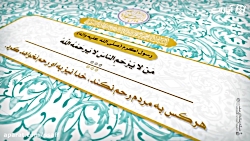 رسول اکرم (صلی الله علیه و آله)
من لا یرحم الناس لا یرحمه الله
هر کس به مردم رحم نکند، خدا نیز به او رحم نخواهد کرد.